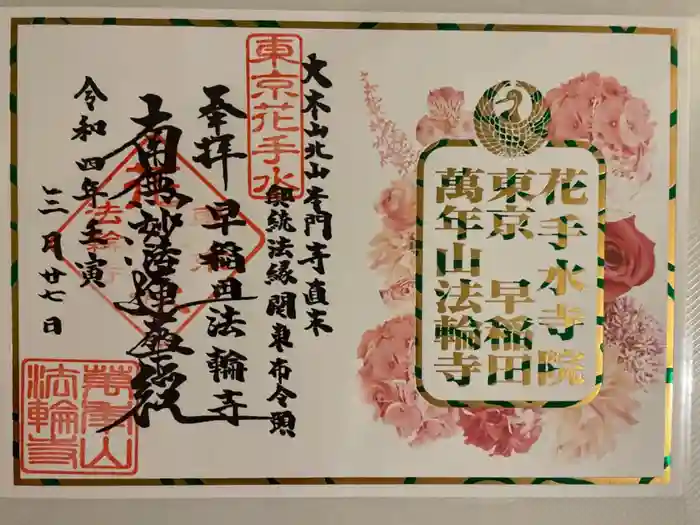 花手水寺院
東京 早稲田
萬年山法輪寺
大本山北山本門寺直末
御統法縁関東布令頭
東京花手水
奉拝 早稲田法輪寺
南無妙法蓮華経
令和四年壬寅
三月廿七日
萬年山
法輪寺